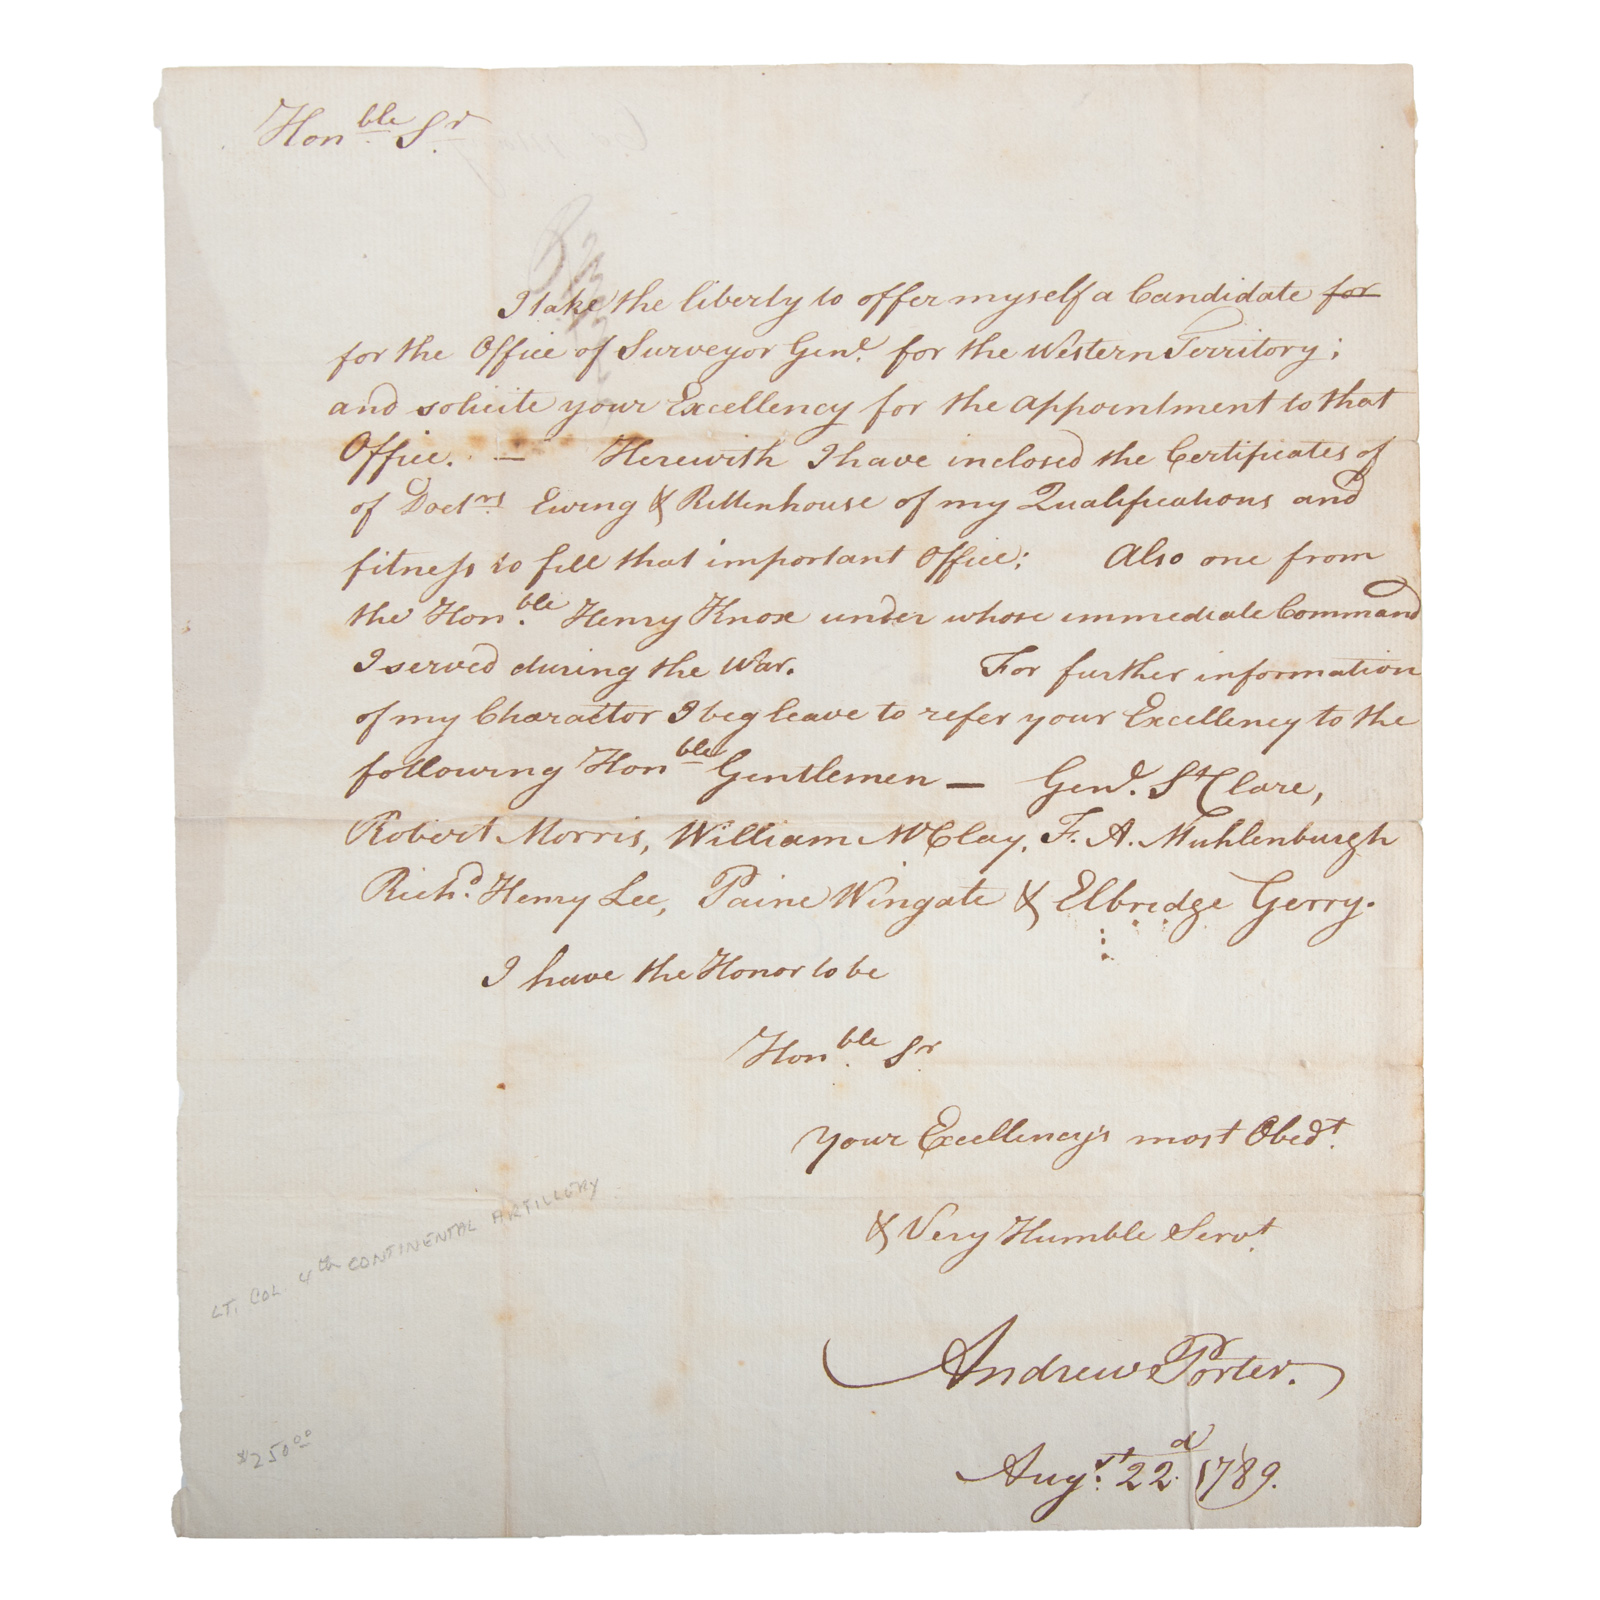 Honble. Sr.
I take the liberty to offer myself a Candidate for
for the Office of Surveyor Genl. for the Western Territory;
and solicite your Excellency for the appointment to that
Office. — Herewith I have inclosed the Certificates of
of Doctrs. Ewing & Rittenhouse of my Qualifications and
fitness to fill that important Office; Also one from
the Honble. Henry Knox under whose immediate Command
I served during the War. For further information
of my Charactor I beg leave to refer your Excellency to the
following Honble Gentlemen — Genl. St Clare,
Robert Morris, William McClay, F. A. Muhlenburgh
Richd. Henry Lee, Paine Wingate & Elbridge Gerry.
I have the Honor to be
Honble. Sr.
Your Excellency's most Obedt.
& Very Humble Servt.
LT. COL 4th CONTINENTAL ARTILLERY
Andrew Porter.
Augst. 22d. 1789.
$250.00